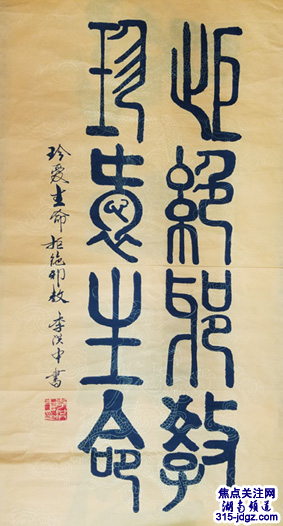 拒絕邪教
珍愛生命
珍爱生命 拒绝邪教 李中書
焦点关注网
湖南频道
315-jdgz.com